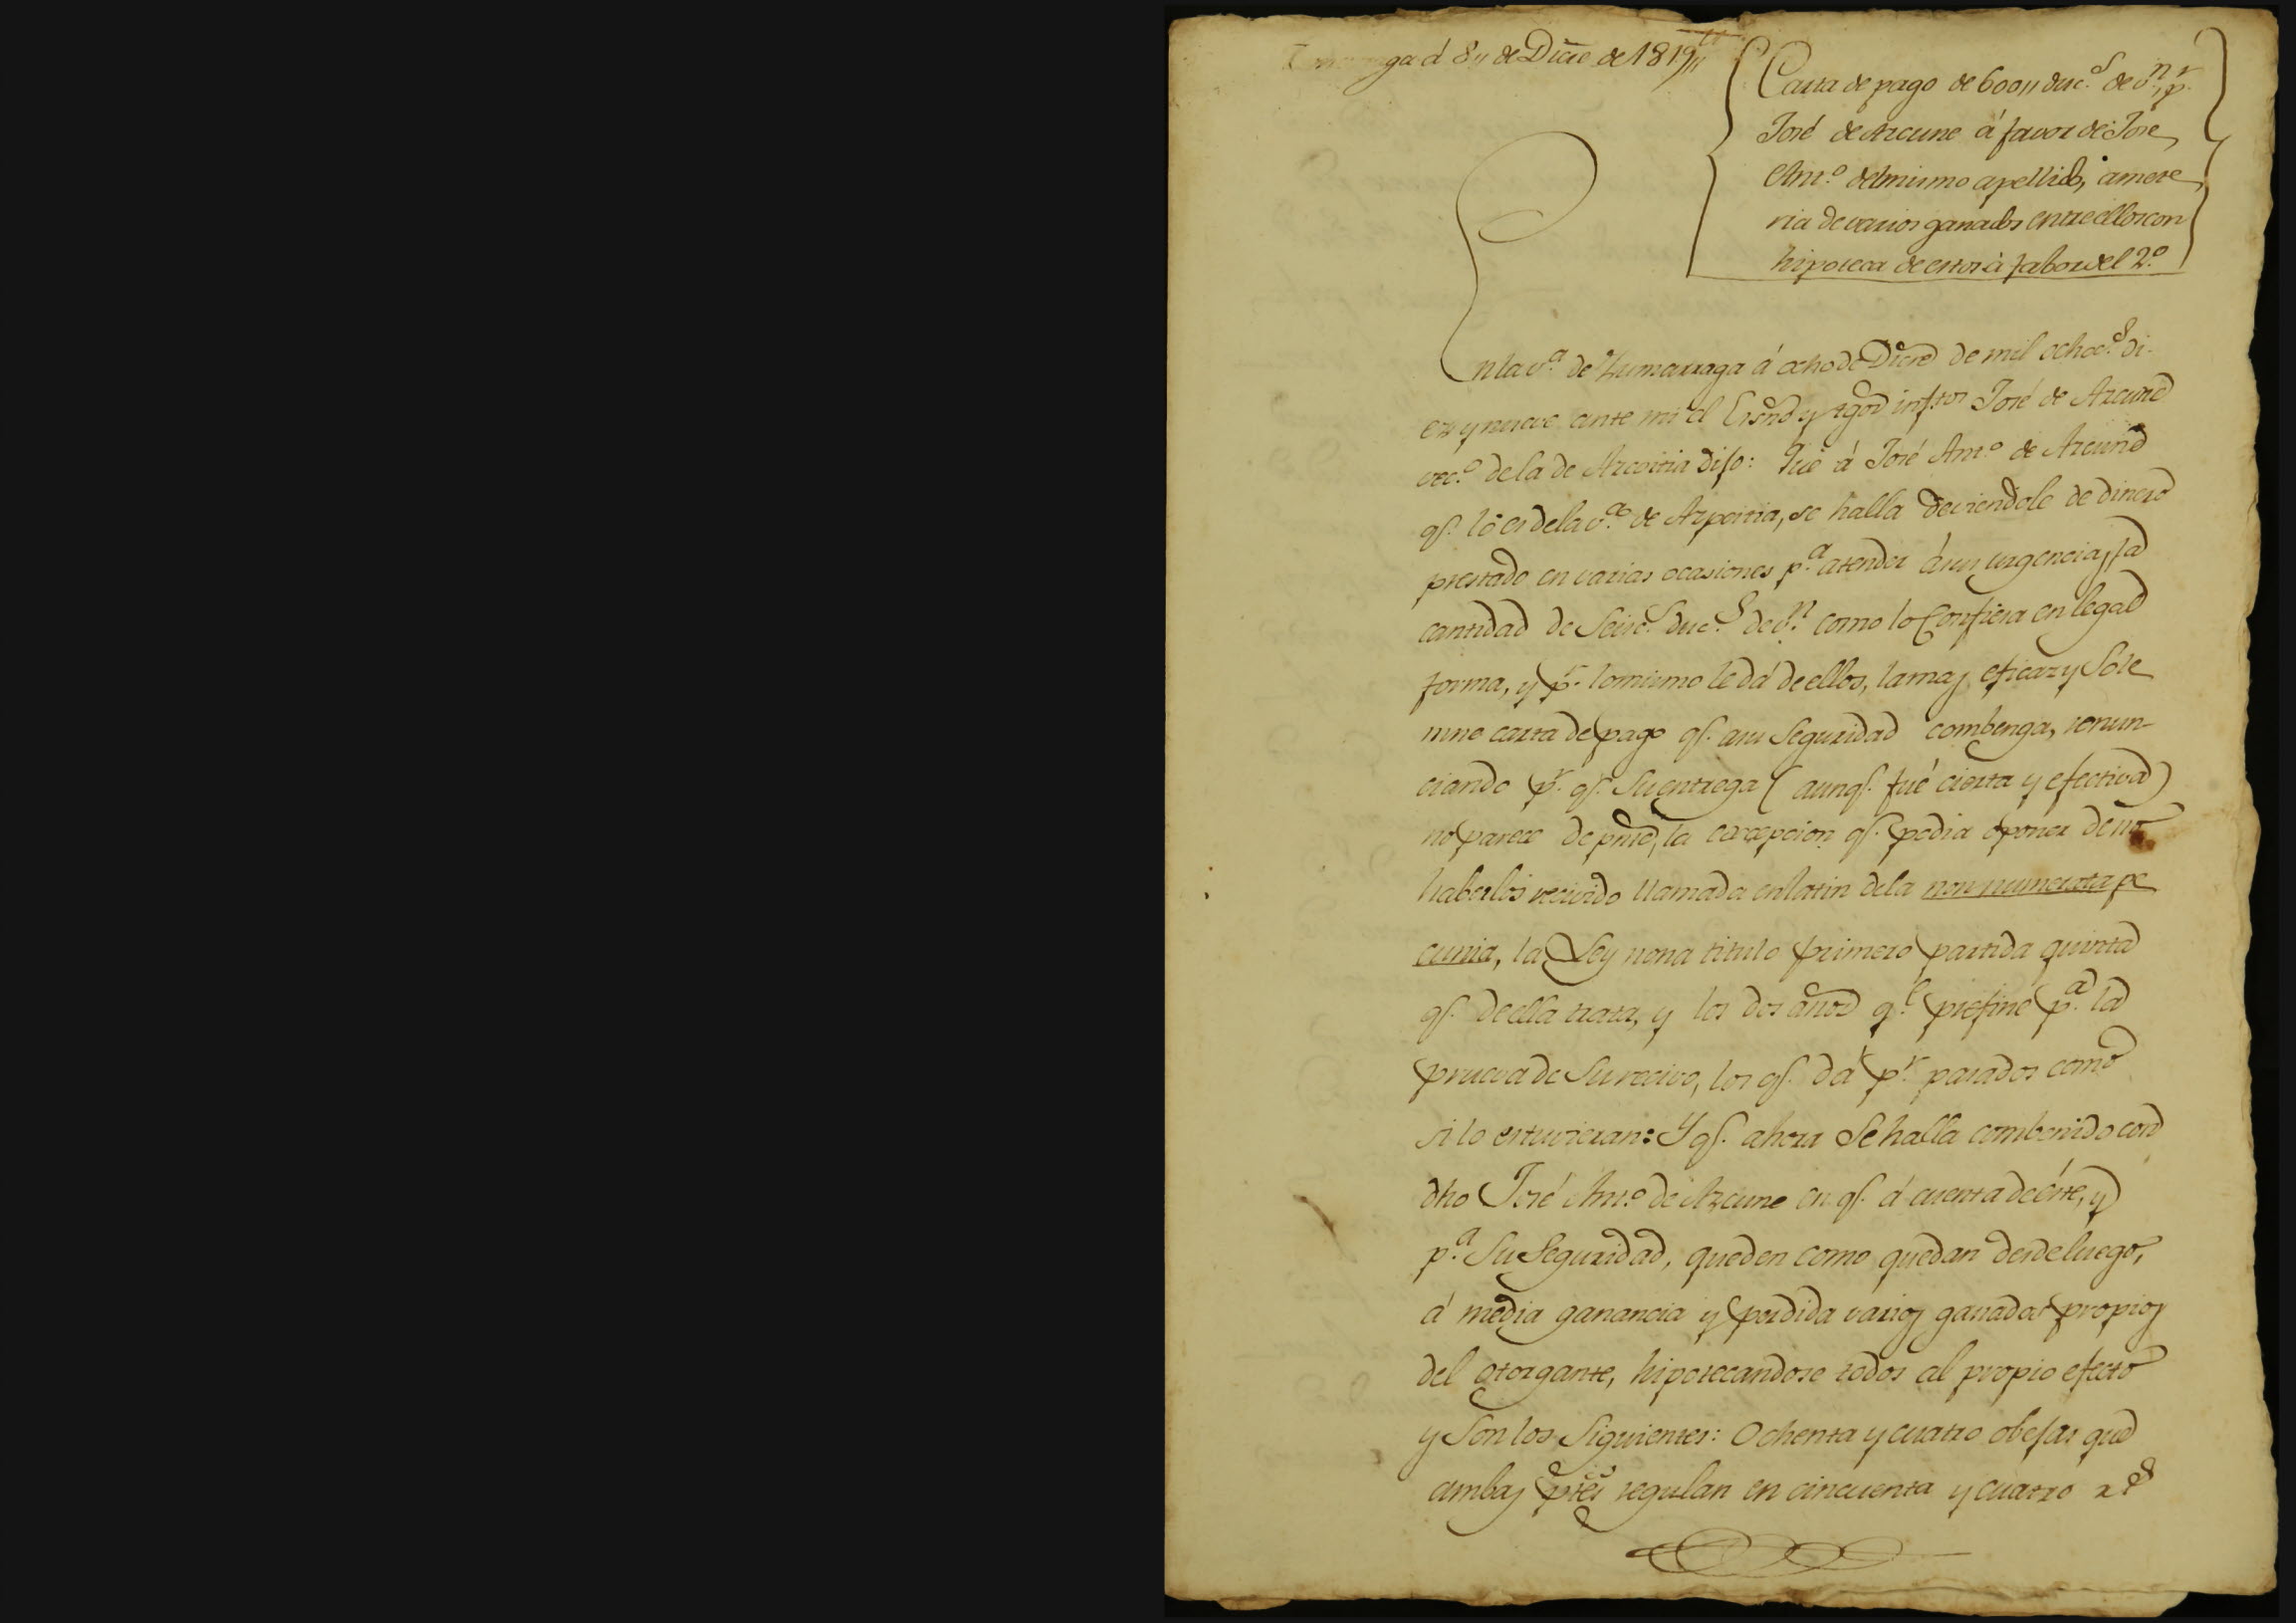 ga á 8,, de Dicre de 1819,,
Carta de pago de 600,, duc.s de v.n p.r
José de Azcune á favor de Jose
Ant.o del mismo apellido, amete
ria de varios ganados entre ellos con
hipoteca de estos à fabor del 2.o
En la v.a de Zumarraga á ocho de Dicre de mil ochoc.s di-
ez y nueve ante mi el Essno y tgos inf.tos José de Azcune
vec.o de la de Azcoitia dijo: Que á José Ant.o de Azcune
q.e lo es de la v.a de Azpeitia, se halla deviendole de dinero
prestado en varias ocasiones p.a atender á sus urgencias, la
cantidad de Seisc.s duc.s de v.n como lo Confiesa en legal
forma, y p.r lo mismo le dá de ellos, la mas eficaz y Sole
mne carta de pago q.e a su Seguridad combenga, renun-
ciando p.r q.e Su entrega (aunq.e fué cierta y efectiva)
no parece de pnte, la excepcion q.e podia oponer de no
haberlos recivido llamada en latin dela non numerata pe
cunia, la Ley nona titulo primero partida quinta
q.e de ella trata, y los dos años q.e prefine p.a la
prueva de Su recivo, los q.e dá p.r pasados como
si lo estuvieran: Y q.e ahora Se halla combenido con
dho José Ant.o de Azcune en q.e á cuenta de éste, y
p.a Su Seguridad, queden como quedan desde luego,
á media ganancia y perdida varios ganados propios
del otorgante, hipotecandose todos al propio efecto
y Son los Siguientes: Ochenta y cuatro obejas que
ambas ptes regulan en cincuenta y cuatro r.s